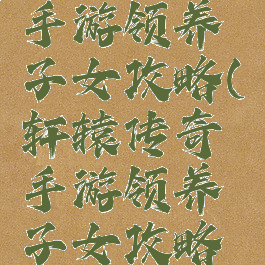 手游领养
子女攻略(
轩辕传奇
手游领养
子女攻略